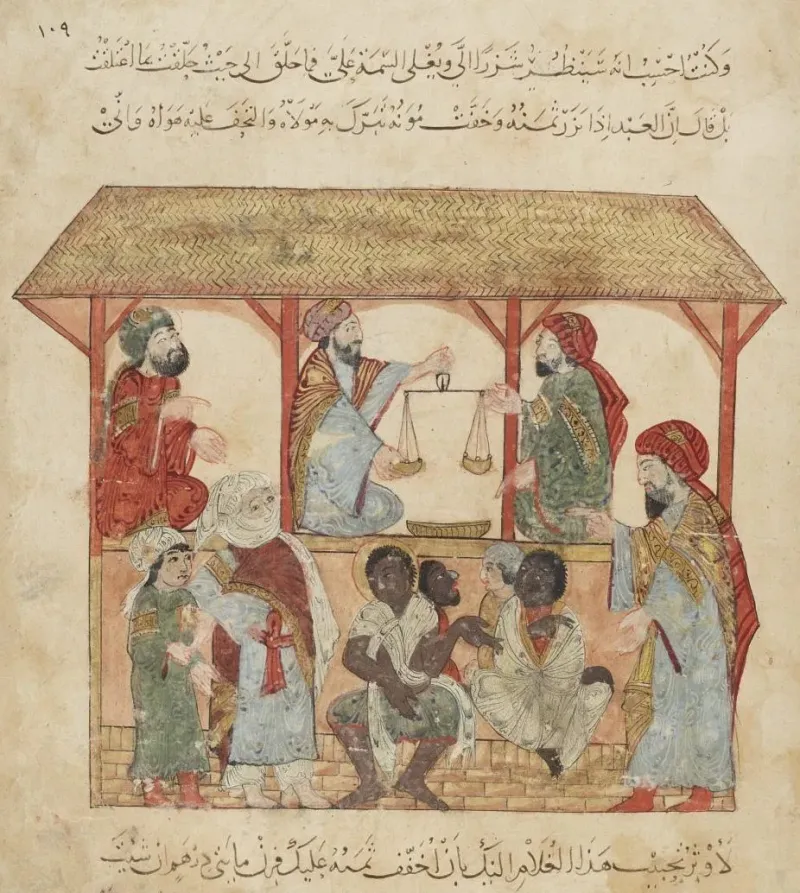 ١٠٩
وكنت احسب انه سينظر شزرا الي ويغلي السمة علي فما حلق الى حيث حلقت اعتلقت
بل قال ان العبد اذا نزر ثمنه وخفت مونه تبرك به مولاه والتحف عليه هواه واني
لاوثر تحبيب هذا الغلام اليك بان اخفف ثمنه عليك فزن مايتي درهم ان شئت